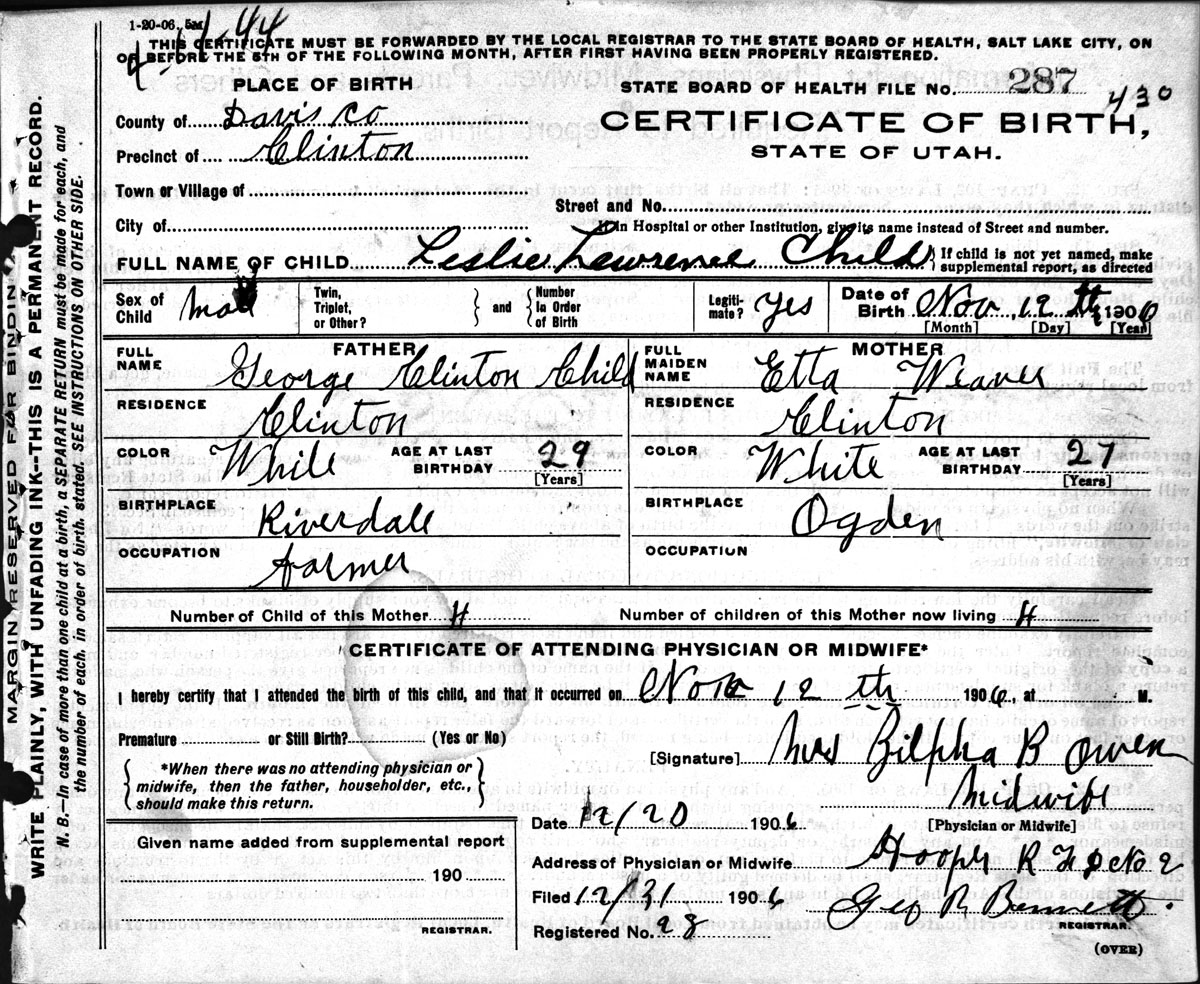 1-20-06. 5M
4-11-44
THIS CERTIFICATE MUST BE FORWARDED BY THE LOCAL REGISTRAR TO THE STATE BOARD OF HEALTH, SALT LAKE CITY, ON
OR BEFORE THE 5TH OF THE FOLLOWING MONTH, AFTER FIRST HAVING BEEN PROPERLY REGISTERED.
PLACE OF BIRTH
STATE BOARD OF HEALTH FILE NO. 287
430
County of Davis Co
CERTIFICATE OF BIRTH,
Precinct of Clinton
STATE OF UTAH.
Town or Village of
Street and No.
City of
If in Hospital or other Institution, give its name instead of Street and number.
FULL NAME OF CHILD Leslie Lawrence Child { If child is not yet named, make
supplemental report, as directed
Sex of Child Twin, Triplet, or Other? } and { Number In Order of Birth Legiti-mate? Yes Date of Birth Nov, 12th, 1906
[Month] [Day] [Year]
FATHER
FULL NAME George Clinton Child
RESIDENCE Clinton
COLOR White AGE AT LAST BIRTHDAY 29
[Years]
BIRTHPLACE Riverdale
OCCUPATION Farmer
MOTHER
FULL MAIDEN NAME Etta Weaver
RESIDENCE Clinton
COLOR White AGE AT LAST BIRTHDAY 27
[Years]
BIRTHPLACE Ogden
OCCUPATION
Number of Child of this Mother 4 Number of children of this Mother now living 4
CERTIFICATE OF ATTENDING PHYSICIAN OR MIDWIFE*
I hereby certify that I attended the birth of this child, and that it occurred on Nov 12th 1906, at M.
Premature or Still Birth? (Yes or No)
[Signature] Mrs Zilpha B Owen
{ *When there was no attending physician or
midwife, then the father, householder, etc.,
should make this return. }
Midwife
[Physician or Midwife]
Date 12/20 1906
Given name added from supplemental report
190
REGISTRAR.
Address of Physician or Midwife Hooper R F D No 2
Filed 12/31 1906 Geo R Bennett.
REGISTRAR.
Registered No. 28
(OVER)
MARGIN RESERVED FOR BINDING
WRITE PLAINLY, WITH UNFADING INK--THIS IS A PERMANENT RECORD.
N. B.—In case of more than one child at a birth, a SEPARATE RETURN must be made for each, and
the number of each, in order of birth, stated. SEE INSTRUCTIONS ON OTHER SIDE.